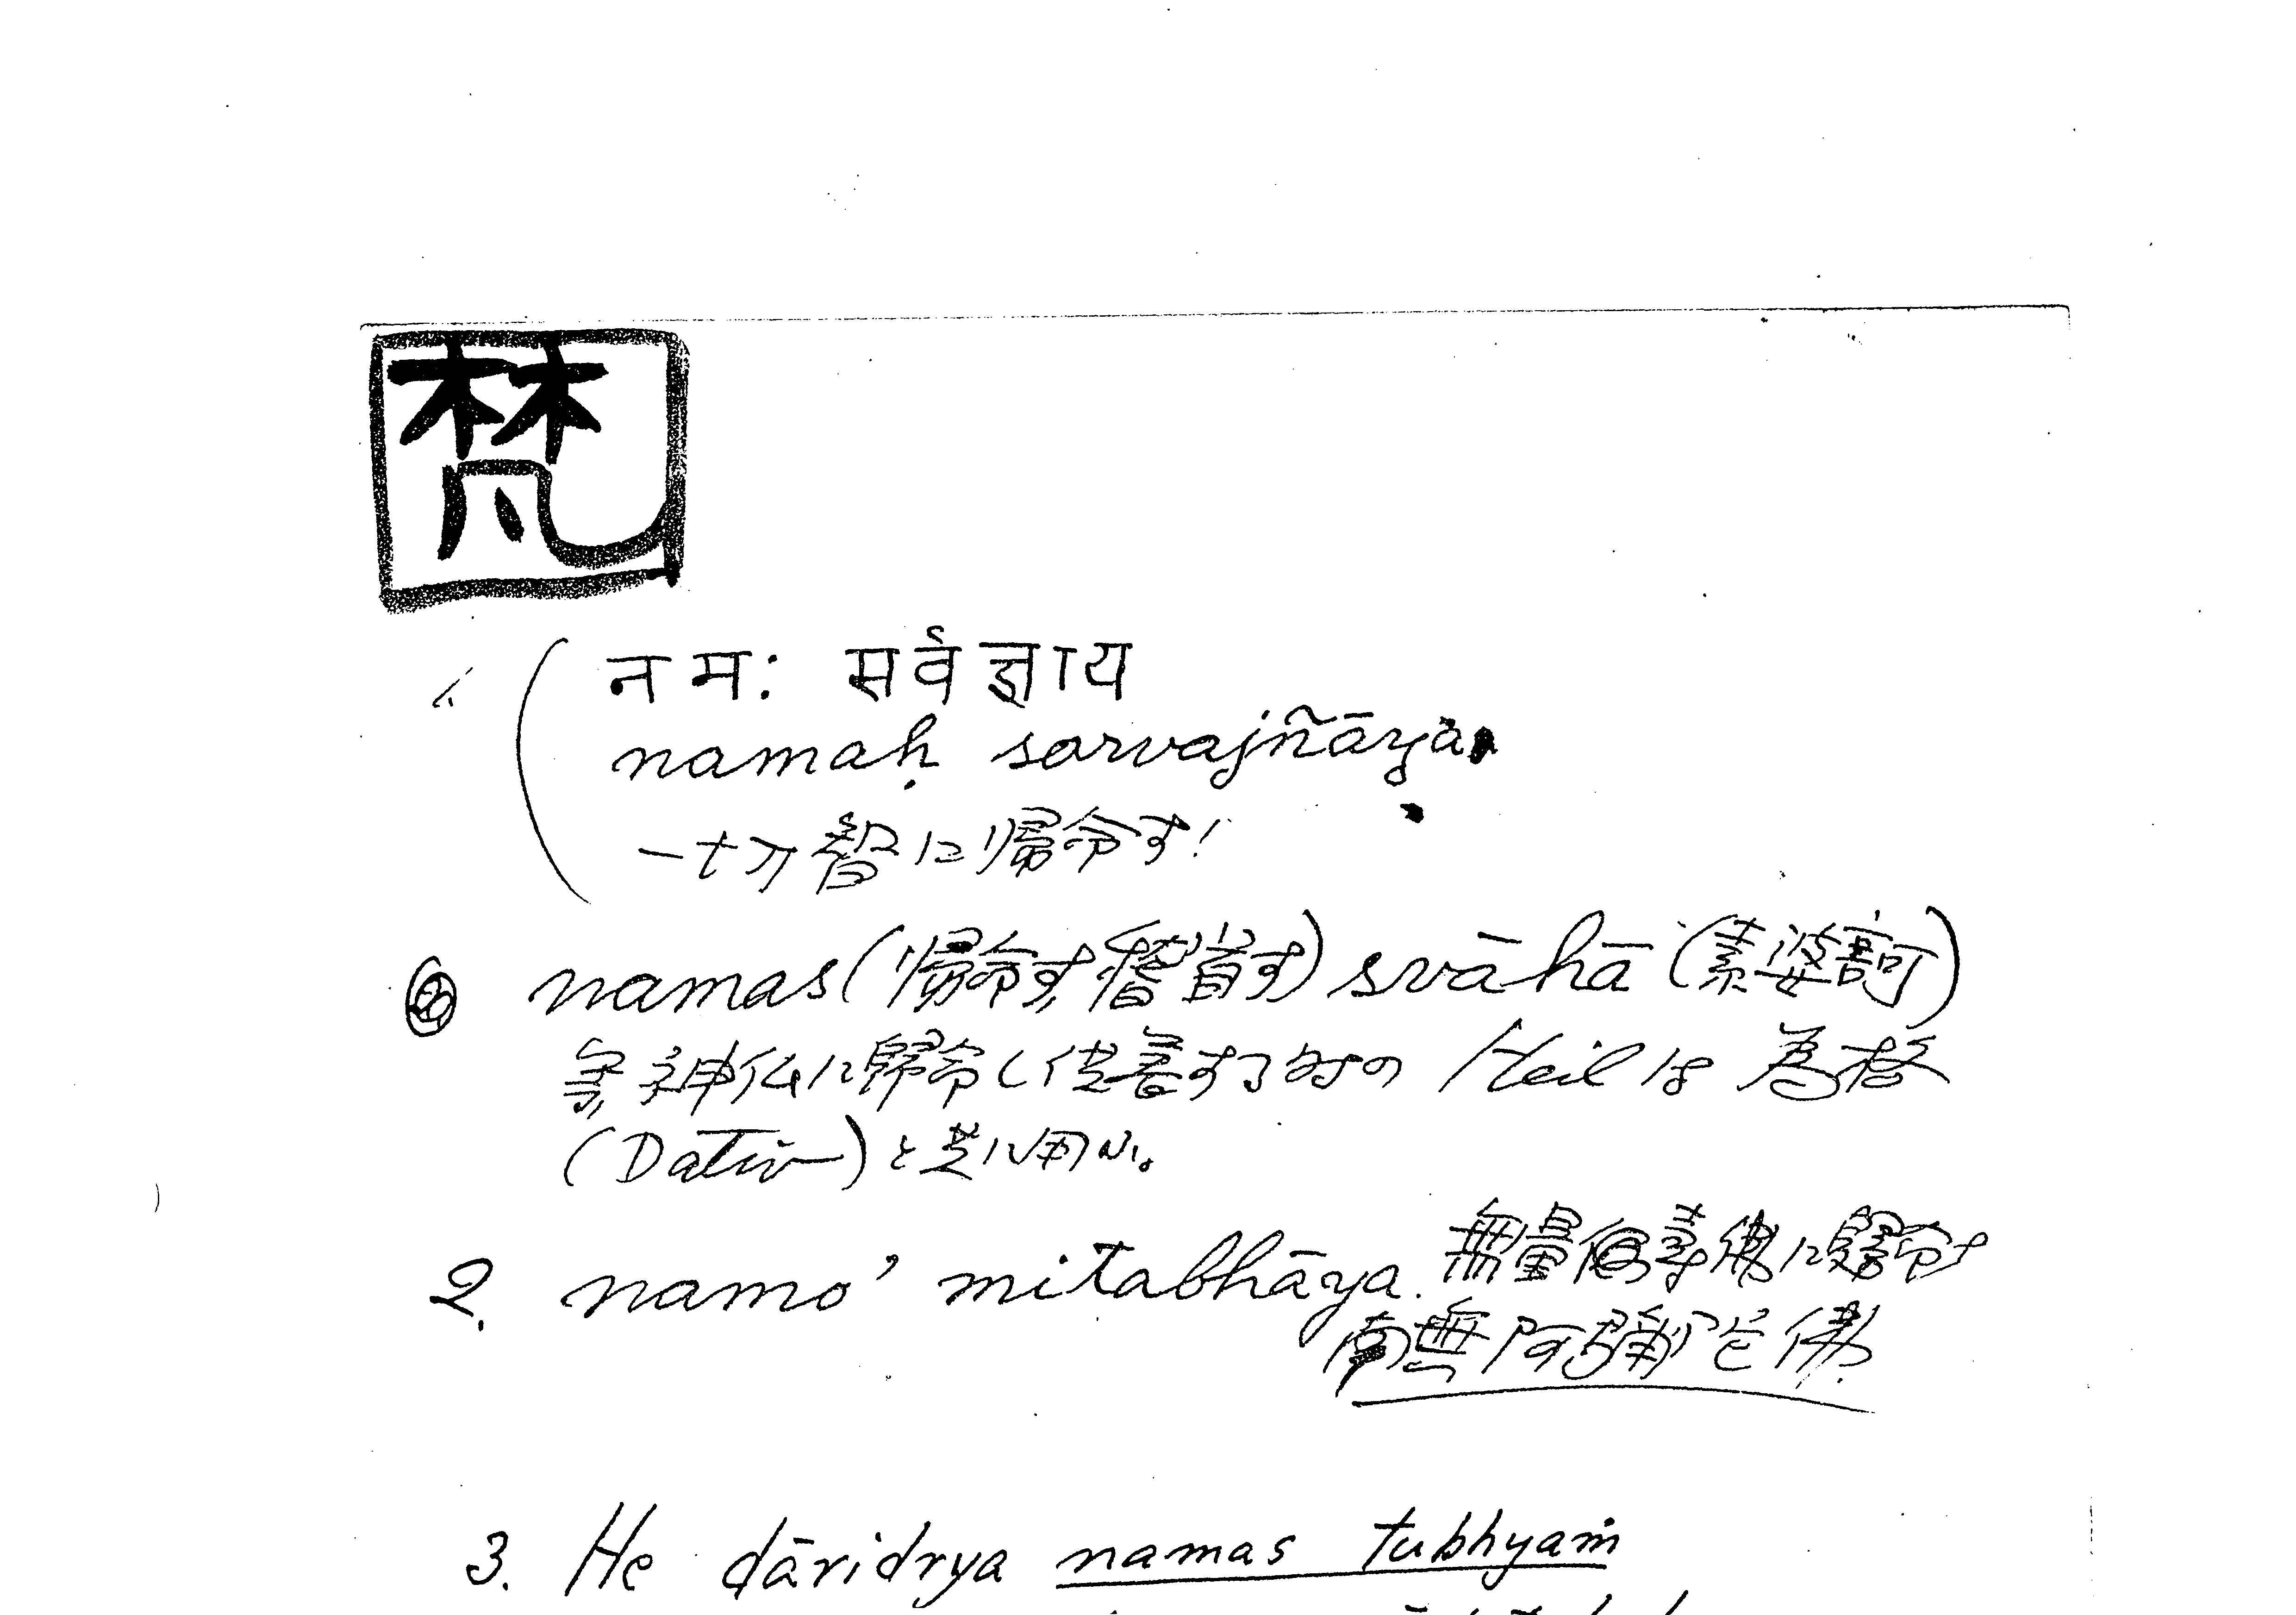 梵
नमः सर्वज्ञाय
namaḥ sarvajñāya
一切智に帰命す!
namas (帰命す, 稽首す) svāhā (素婆訶)
等 神仏に帰命し供養する時の Heil は 為格
(Dativ) と共に用ふ。
2. namo' mitabhāya. 無量寿佛に歸命す
南無阿弥陀佛
3. He dāridrya namas tubhyaṁ